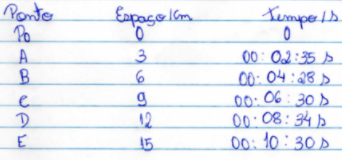 Ponto Espaço/Km Tempo/s
Po 0 0
A 3 00:02:35 s
B 6 00:04:28 s
C 9 00:06:30 s
D 12 00:08:34 s
E 15 00:10:30 s